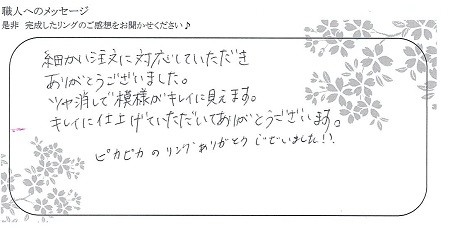 職人へのメッセージ
是非 完成したリングのご感想をお聞かせください♪
細かい注文に対応していただき
ありがとうございました。
ツヤ消しで模様がキレイに見えます。
キレイに仕上げていただいてありがとうございます。
ピカピカのリングありがとうございました!!